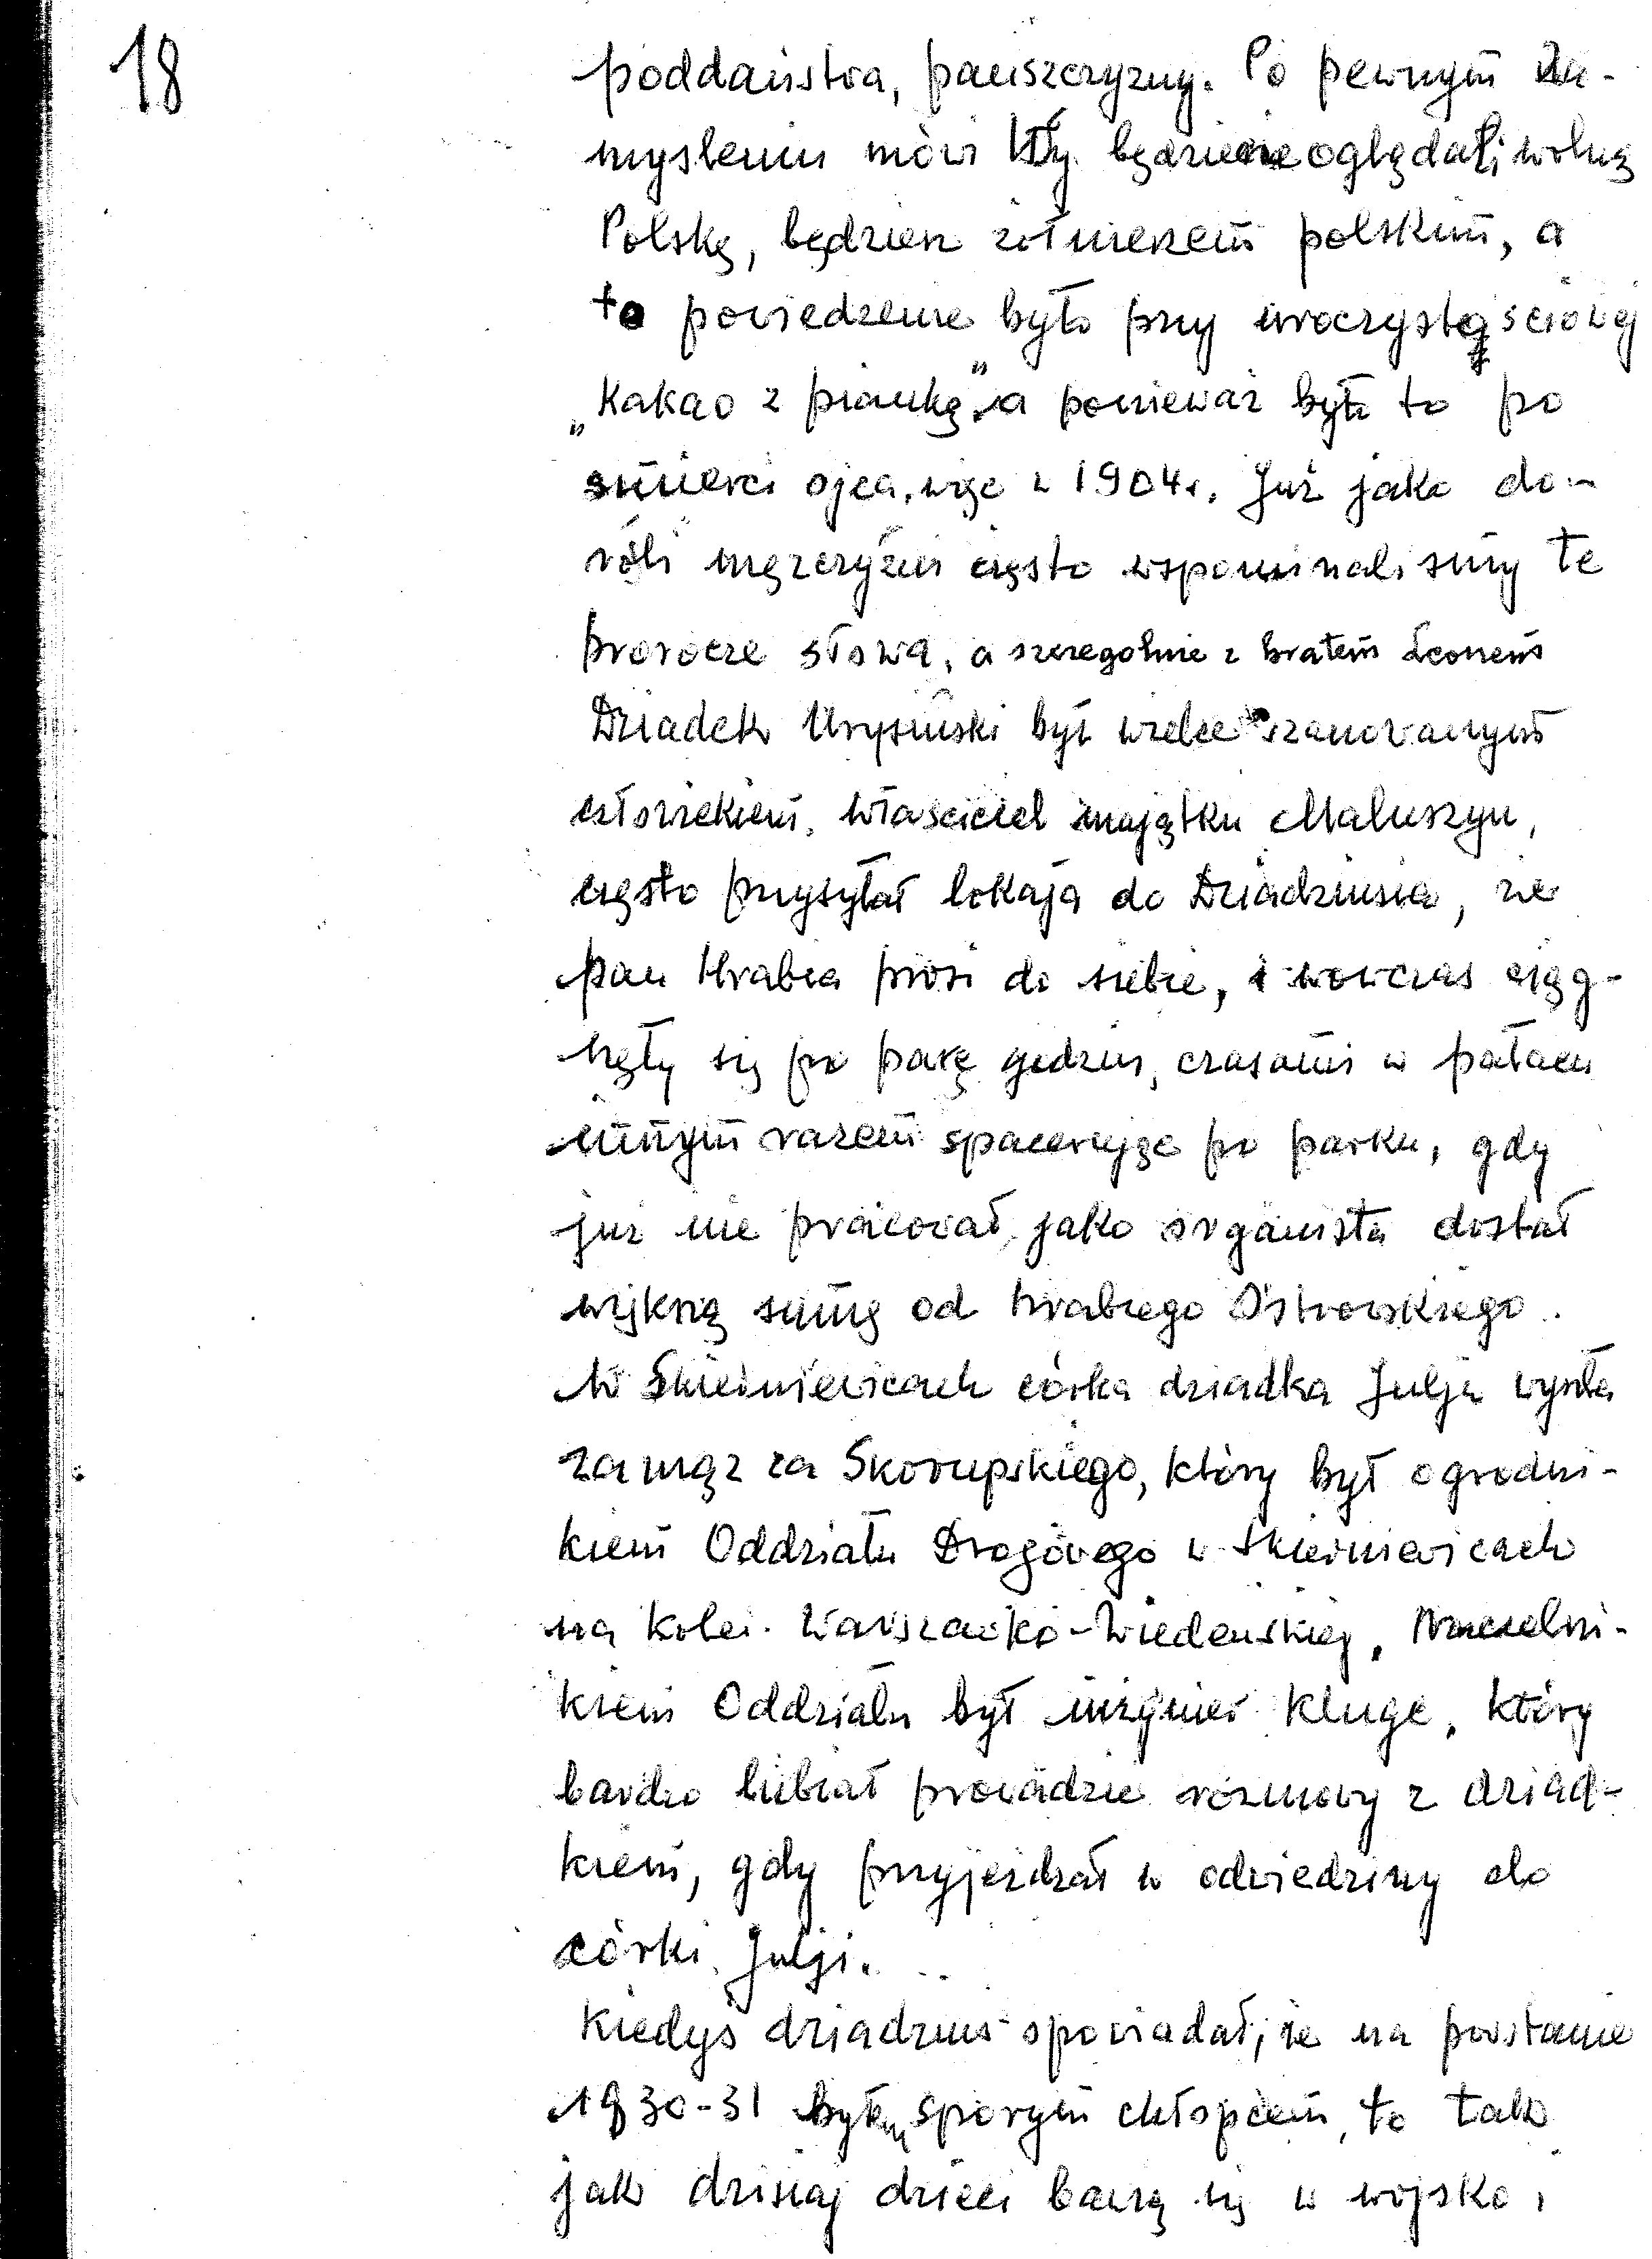 18
poddaństwa, pańszczyzny. Po pewnym za-
myśleniu mówi Wy będziecie oglądali wolną
Polskę, będziesz żołnierzem polskim, a
to powiedzenie było przy uroczystościowej
„Kakao z pianką" a ponieważ było to po
śmierci ojca, więc w 1904 r. Już jako do-
rośli mężczyźni często wspominaliśmy te
prorocze słowa, a szczególnie z bratem Leonem
Dziadek Urysiński był wielce szanowanym
człowiekiem, właściciel majątku Maluszyn,
często przysyłał lokaja do Dziadziusia, że
pan Hrabia prosi do siebie, i wówczas ciąg-
nęły się po parę godzin, czasami w pałacu
innym razem spacerując po parku, gdy
już nie pracował, jako organista dostał
większą sumę od hrabiego Ostrowskiego.
W Skierniewicach córka dziadka Julja wyszła
za mąż za Skorupskiego, który był ogrodni-
kiem Oddziału Drogowego w Skierniewicach
na Kolei Warszawsko-Wiedeńskiej, Naczelni-
kiem Oddziału był inżynier Kluge, który
bardzo lubiał prowadzić rozmowy z dziad-
kiem, gdy przyjeżdżał w odwiedziny do
córki Julji.
Kiedyś dziadziuś opowiadał, że na powstanie
1830-31 byłem sporym chłopcem, to tak
jak dzisiaj dzieci bawią się w wojsko,